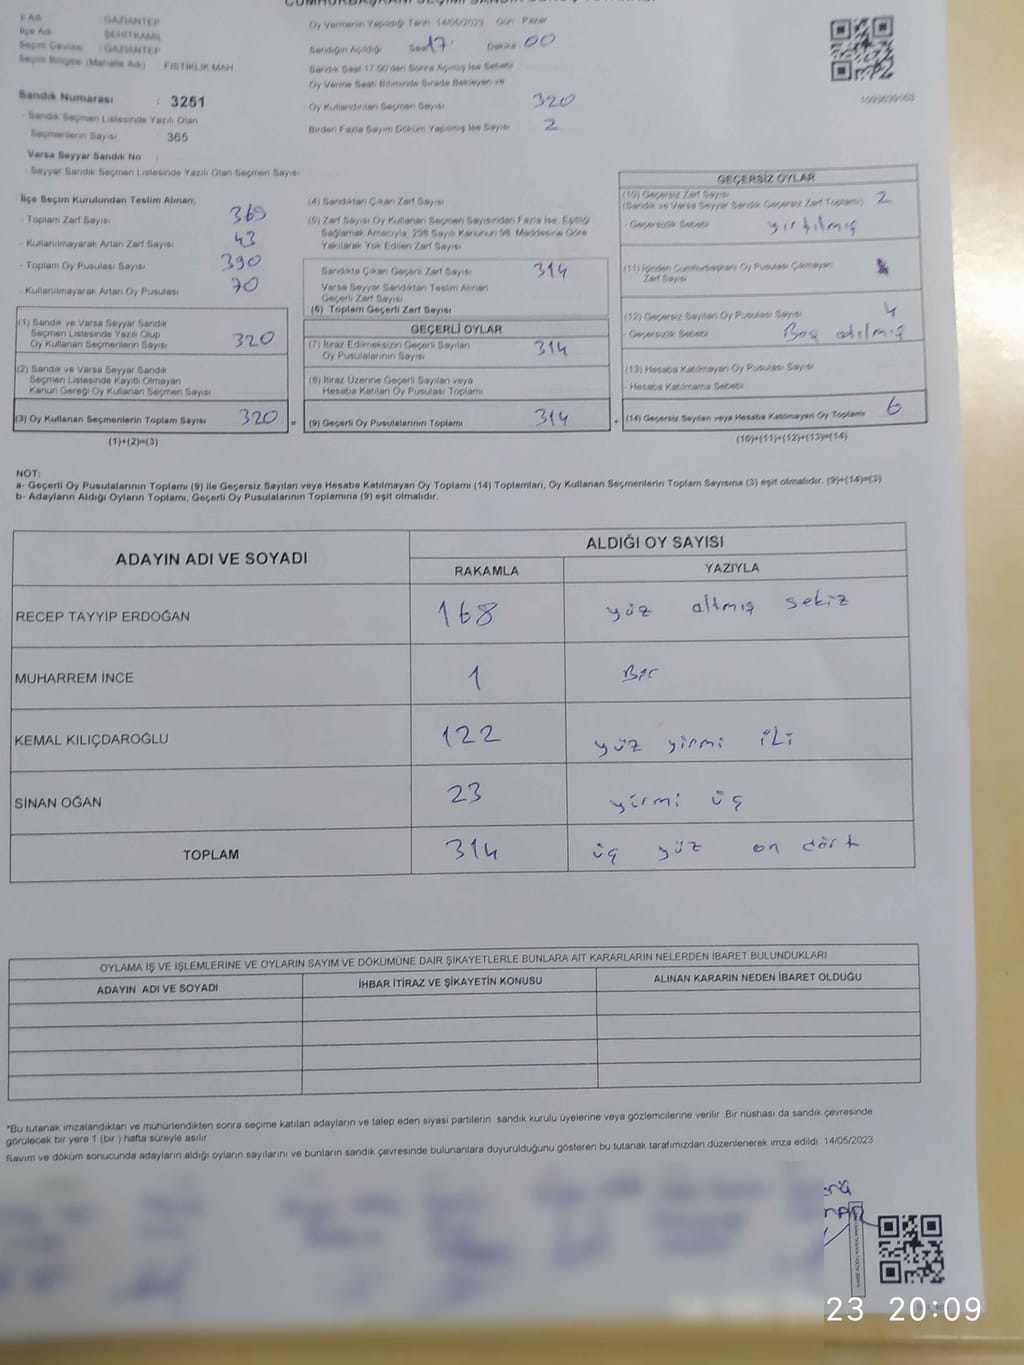 İl Adı : GAZİANTEP
İlçe Adı : ŞEHİTKAMİL
Seçim Çevresi : GAZİANTEP
Seçim Bölgesi (Mahalle Adı) : FISTIKLIK MAH
Sandık Numarası : 3251
- Sandık Seçmen Listesinde Yazılı Olan
Seçmenlerin Sayısı 365
Varsa Seyyar Sandık No :
- Seyyar Sandık Seçmen Listesinde Yazılı Olan Seçmen Sayısı
Oy Vermenin Yapıldığı Tarih : 14/05/2023 Gün : Pazar
Sandığın Açıldığı Saat 17 Dakika 00
Sandık Saat 17:00'den Sonra Açılmış İse Sebebi
Oy Verme Saati Bitiminde Sırada Bekleyen ve
Oy Kullandırılan Seçmen Sayısı 320
Birden Fazla Sayım Döküm Yapılmış İse Sayısı 2
İlçe Seçim Kurulundan Teslim Alınan;
- Toplam Zarf Sayısı
- Kullanılmayarak Artan Zarf Sayısı 43
- Toplam Oy Pusulası Sayısı 390
- Kullanılmayarak Artan Oy Pusulası 70
(1) Sandık ve Varsa Seyyar Sandık
Seçmen Listesinde Yazılı Olup
Oy Kullanan Seçmenlerin Sayısı 320
(2) Sandık ve Varsa Seyyar Sandık
Seçmen Listesinde Kayıtlı Olmayan
Kanun Gereği Oy Kullanan Seçmen Sayısı
(3) Oy Kullanan Seçmenlerin Toplam Sayısı 320 =
(1)+(2)=(3)
(4) Sandıktan Çıkan Zarf Sayısı
(5) Zarf Sayısı Oy Kullanan Seçmen Sayısından Fazla İse, Eşitliği
Sağlamak Amacıyla, 298 Sayılı Kanunun 98. Maddesine Göre
Yakılarak Yok Edilen Zarf Sayısı
Sandıkta Çıkan Geçerli Zarf Sayısı 314
Varsa Seyyar Sandıktan Teslim Alınan
Geçerli Zarf Sayısı
(6) Toplam Geçerli Zarf Sayısı
GEÇERLİ OYLAR
(7) İtiraz Edilmeksizin Geçerli Sayılan
Oy Pusulalarının Sayısı 314
(8) İtiraz Üzerine Geçerli Sayılan veya
Hesaba Katılan Oy Pusulası Toplamı
(9) Geçerli Oy Pusulalarının Toplamı 314 +
GEÇERSİZ OYLAR
(10) Geçersiz Zarf Sayısı 2
(Sandık ve Varsa Seyyar Sandık Geçersiz Zarf Toplamı)
- Geçersizlik Sebebi yırtılmış
(11) İçinden Cumhurbaşkanı Oy Pusulası Çıkmayan
Zarf Sayısı
(12) Geçersiz Sayılan Oy Pusulası Sayısı 4
- Geçersizlik Sebebi Boş atılmış
(13) Hesaba Katılmayan Oy Pusulası Sayısı
- Hesaba Katılmama Sebebi
(14) Geçersiz Sayılan veya Hesaba Katılmayan Oy Toplamı 6
(10)+(11)+(12)+(13)=(14)
NOT:
a- Geçerli Oy Pusulalarının Toplamı (9) ile Geçersiz Sayılan veya Hesaba Katılmayan Oy Toplamı (14) Toplamları, Oy Kullanan Seçmenlerin Toplam Sayısına (3) eşit olmalıdır. (9)+(14)=(3)
b- Adayların Aldığı Oyların Toplamı, Geçerli Oy Pusulalarının Toplamına (9) eşit olmalıdır.
ADAYIN ADI VE SOYADI ALDIĞI OY SAYISI
RAKAMLA YAZIYLA
RECEP TAYYİP ERDOĞAN 168 yüz altmış sekiz
MUHARREM İNCE 1 Bir
KEMAL KILIÇDAROĞLU 122 yüz yirmi iki
SİNAN OĞAN 23 yirmi üç
TOPLAM 314 üç yüz on dört
OYLAMA İŞ VE İŞLEMLERİNE VE OYLARIN SAYIM VE DÖKÜMÜNE DAİR ŞİKAYETLERLE BUNLARA AİT KARARLARIN NELERDEN İBARET BULUNDUKLARI
ADAYIN ADI VE SOYADI İHBAR İTİRAZ VE ŞİKAYETİN KONUSU ALINAN KARARIN NEDEN İBARET OLDUĞU
*Bu tutanak imzalandıktan ve mühürlendikten sonra seçime katılan adayların ve talep eden siyasi partilerin sandık kurulu üyelerine veya gözlemcilerine verilir. Bir nüshası da sandık çevresinde
görülecek bir yere 1 (bir ) hafta süreyle asılır.
Sayım ve döküm sonucunda adayların aldığı oyların sayılarını ve bunların sandık çevresinde bulunanlara duyurulduğunu gösteren bu tutanak tarafımızdan düzenlenerek imza edildi. 14/05/2023
23 20:09